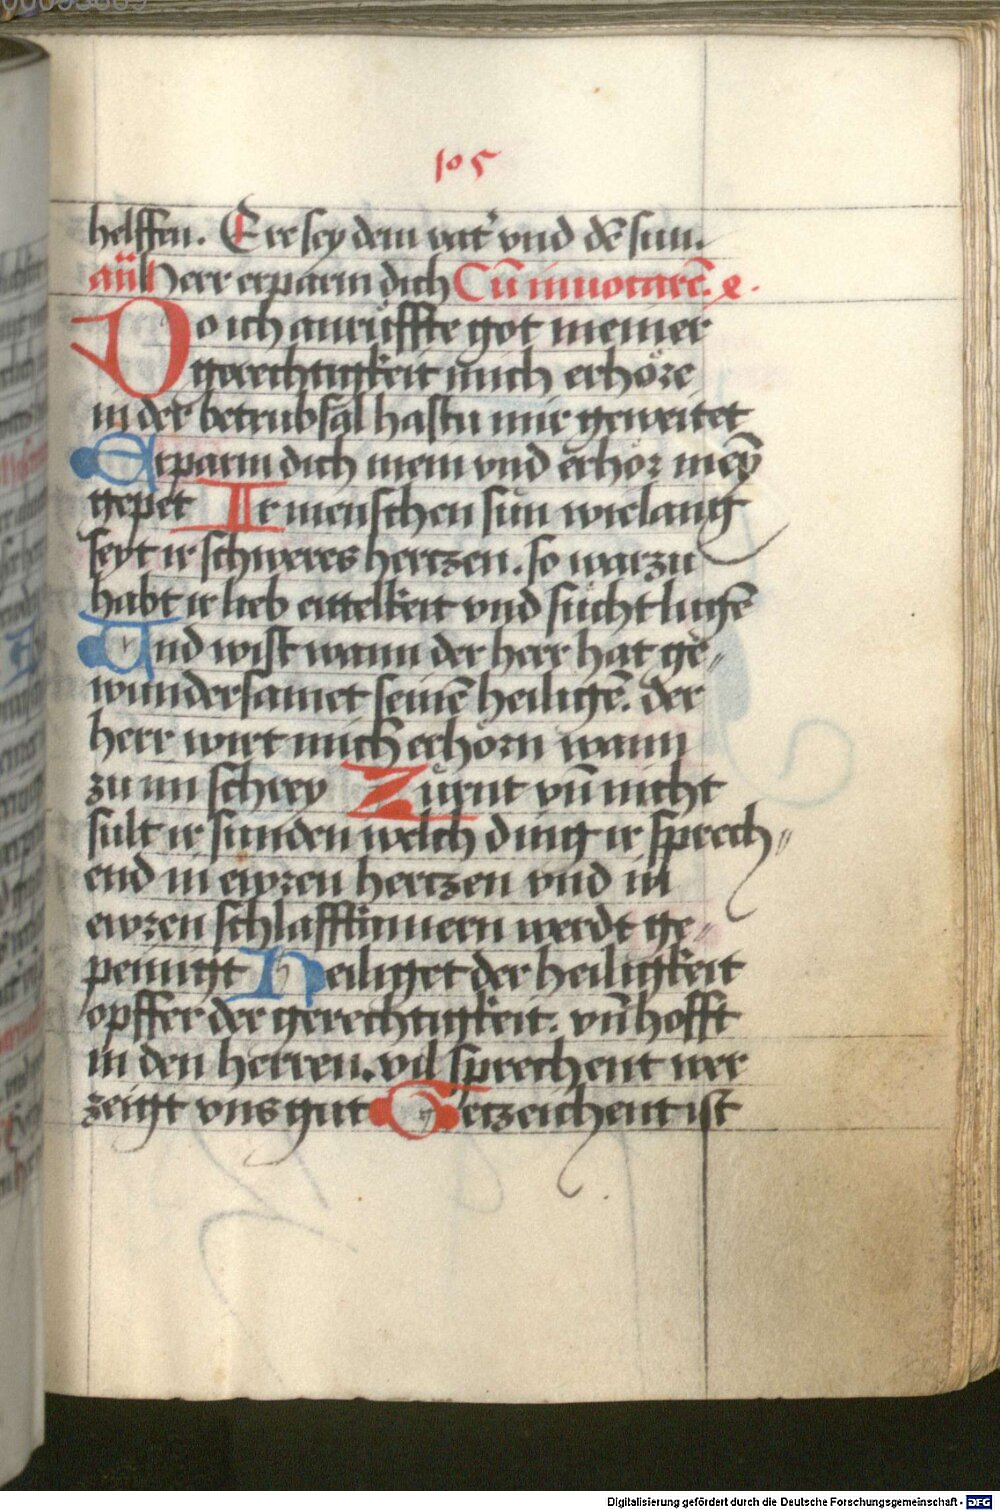 105
helffen. Ere sey dem vat' vnd dē sun.
añ Herr erparm dich Cū inuocarē. ꝛ.
Do ich anrüffte got meiner
gerechtigkeit mich erhöre
in der betrubsal hastu mir geweitet
Erparm dich mein vnd erhör mey̅
gepet Ir menschen sün wielang
seyt ir schweres hertzen. so warzu
habt ir lieb eittelkeit vnd sücht lugē
Und wist wann der herr hat ge„
wundersamet seinē heiligē. der
herr wirt mich erhörn wann
zu im schrey Zürnt vn̄ nicht
sült ir sunden welch ding ir sprech„
end in ewren hertzen vnd in
ewren schlaffkamern werdt ge„
peinigt Heiliget der heiligkeit
opffer der gerechtigkeit. vn̄ hofft
in den herren. vil sprechent wer
zeigt vns gut Getzeichent ist
Digitalisierung gefördert durch die Deutsche Forschungsgemeinschaft - DFG